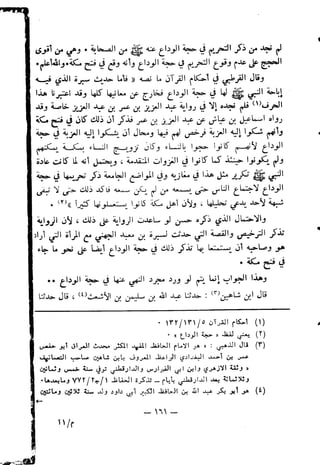 لم نجد من ذكر التحريم في حجة الوداع عنه ﷺ من الصحابة ، وهي من أقوى
الحجج على عدم وقوع التحريم في حجة الوداع وأنه وقع في فتح مكة ، والله أعلم ٠
وقال القرطبي في أحكام القرآن ما نصه « فأما حديث سبرة الذي فيه
إباحة النبي ﷺ لها في حجة الوداع فخارج عن معانيها كلها وقد اعتبرنا هذا
الحرف(١) فلم نجده إلا في رواية عبد العزيز بن عمر بن عبد العزيز خاصة وقد
رواه اسماعيل بن عياش عن عبد العزيز بن عمر فذكر أن ذلك كان في فتح مكة
وأنهم شكوا إليه العزبة فرخص لهم فيها ومحال أن يشكوا إليه العزبة في حجة
الوداع لأنهم كانوا حجوا بالنساء وكان تزويج النساء بمكة يمكنهم
ولم يكونوا حينئذ كما كانوا في الغزوات المتقدمة ، ويحتمل أنه لما كانت عادة
النبي ﷺ تكرير مثل هذا في مغازيه وفي المواضع الجامعة ذكر تحريمها في حجة
الوداع لاجتماع الناس حتى يسمعه من لم يكن سمعه فأكد ذلك حتى لا تبقى
شبهة لأحد يدعي تحليلها ، ولأن أهل مكة كانوا يستعملونها كثيرا »(٢) ٠
والاحتمال الذي ذكره حسن لو ساعدت الرواية على ذلك ، لأن الرواية
تذكر الترخيص والقصة التي حدثت لسبرة بن معبد الجهني مع المرأة التي أراد
هو وصاحبه أن يستمتعا بها تذكر ذلك في حجة الوداع أيضا على نحو ما جاء
في فتح مكة ٠
وهذا الجواب إنما يتم لو ورد مجرد النهي عنها في حجة الوداع ٠٠
قال ابن شاهين(٣) : حدثنا عبد الله بن سليمن بن الأشعث(٤) ، قال حدثنا
(١) أحكام القرآن ١٣٢/١٣١/٥ ٠
(٢) يعني لفظ « حجة الوداع » ٠
(٣) قال الذهبي : « هو الإمام الحافظ المفيد المكثر محدث العراق أبو حفص
عمر بن أحمد البغدادي الواعظ المعروف بابن شاهين صاحب التصانيف
، وثقه الأزهري وابن أبي الفوارس والدارقطني توفي سنة خمس وثمانين
وثلاثمائة بعد الدارقطني بأيام ـ تذكرة الحفاظ
(٤) هو أبو بكر عبد الله بن الحافظ الكبير أبي داود ولد سنة ثلاثين ومائتين
— ١٦١ —
م/١١